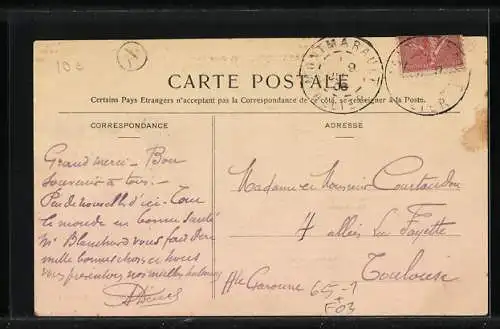 10 €
A
MONTMARAULT
9
06
ALLIER
CARTE POSTALE
Certains Pays Etrangers n'acceptent pas la Correspondance de ce côté, se renseigner à la Poste.
CORRESPONDANCE
ADRESSE
Grand merci - Bon
souvenir à tous. -
Peu de nouvelles d'ici - Tout
le monde en bonne santé
Mr Blanchard vous fait dire
mille bonnes choses et nous
vous présentons nos meilleures
Madame et Monsieur Courtaudon
4 allées La Fayette
Toulouse
Hte Garonne
65-1
F03